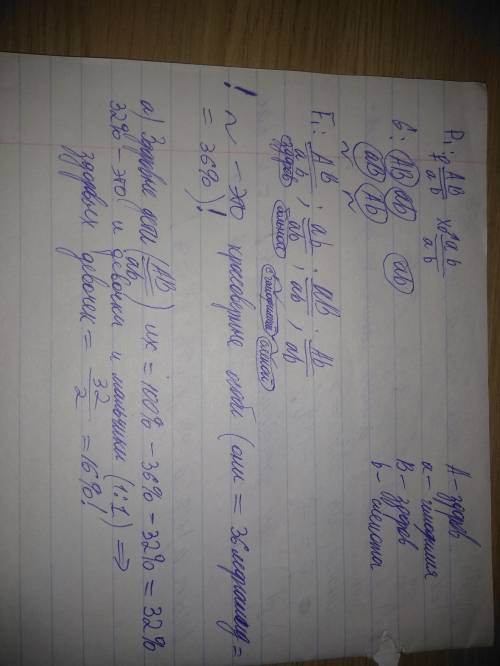 P: ♀ AB/ab x ♂ ab/ab
А - здоров
а - гемофилия
В - здоров
b - слепота
G: AB ab ab
aB Ab
~ ~
F₁: AB/ab ; ab/ab ; aB/ab ; Ab/ab
здоров больной гемофилия слепой
! ~ - это кроссоверные особи (они = 36 морганид =
= 36%)!
а) Здоровы дети (AB/ab) их = 100% - 36% - 32% = 32%
32% - это и девочки и мальчики (1:1) ⇒
здоровых девочек = 32/2 = 16%!